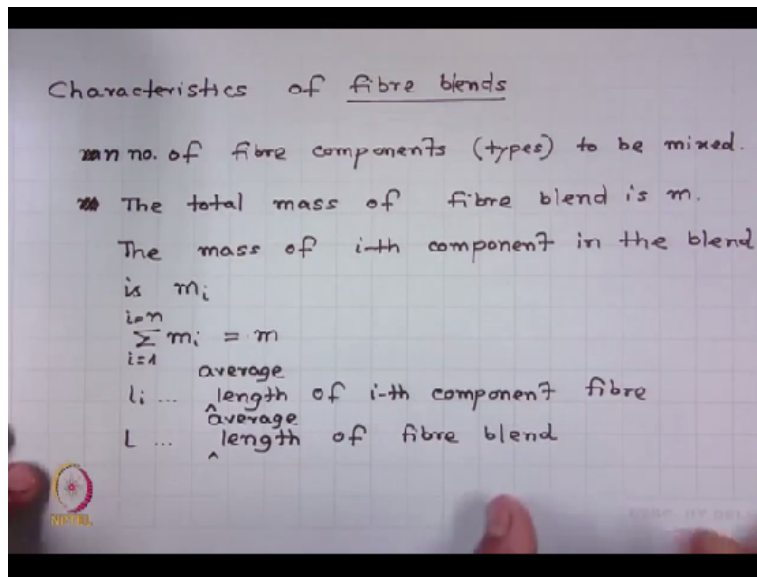 Characteristics of fibre blends
n no. of fibre components (types) to be mixed.
The total mass of fibre blend is m.
The mass of i-th component in the blend
is mi
i=n
Σ mi = m
i=1
average
li ... length of i-th component fibre
average
L ... length of fibre blend
NPTEL